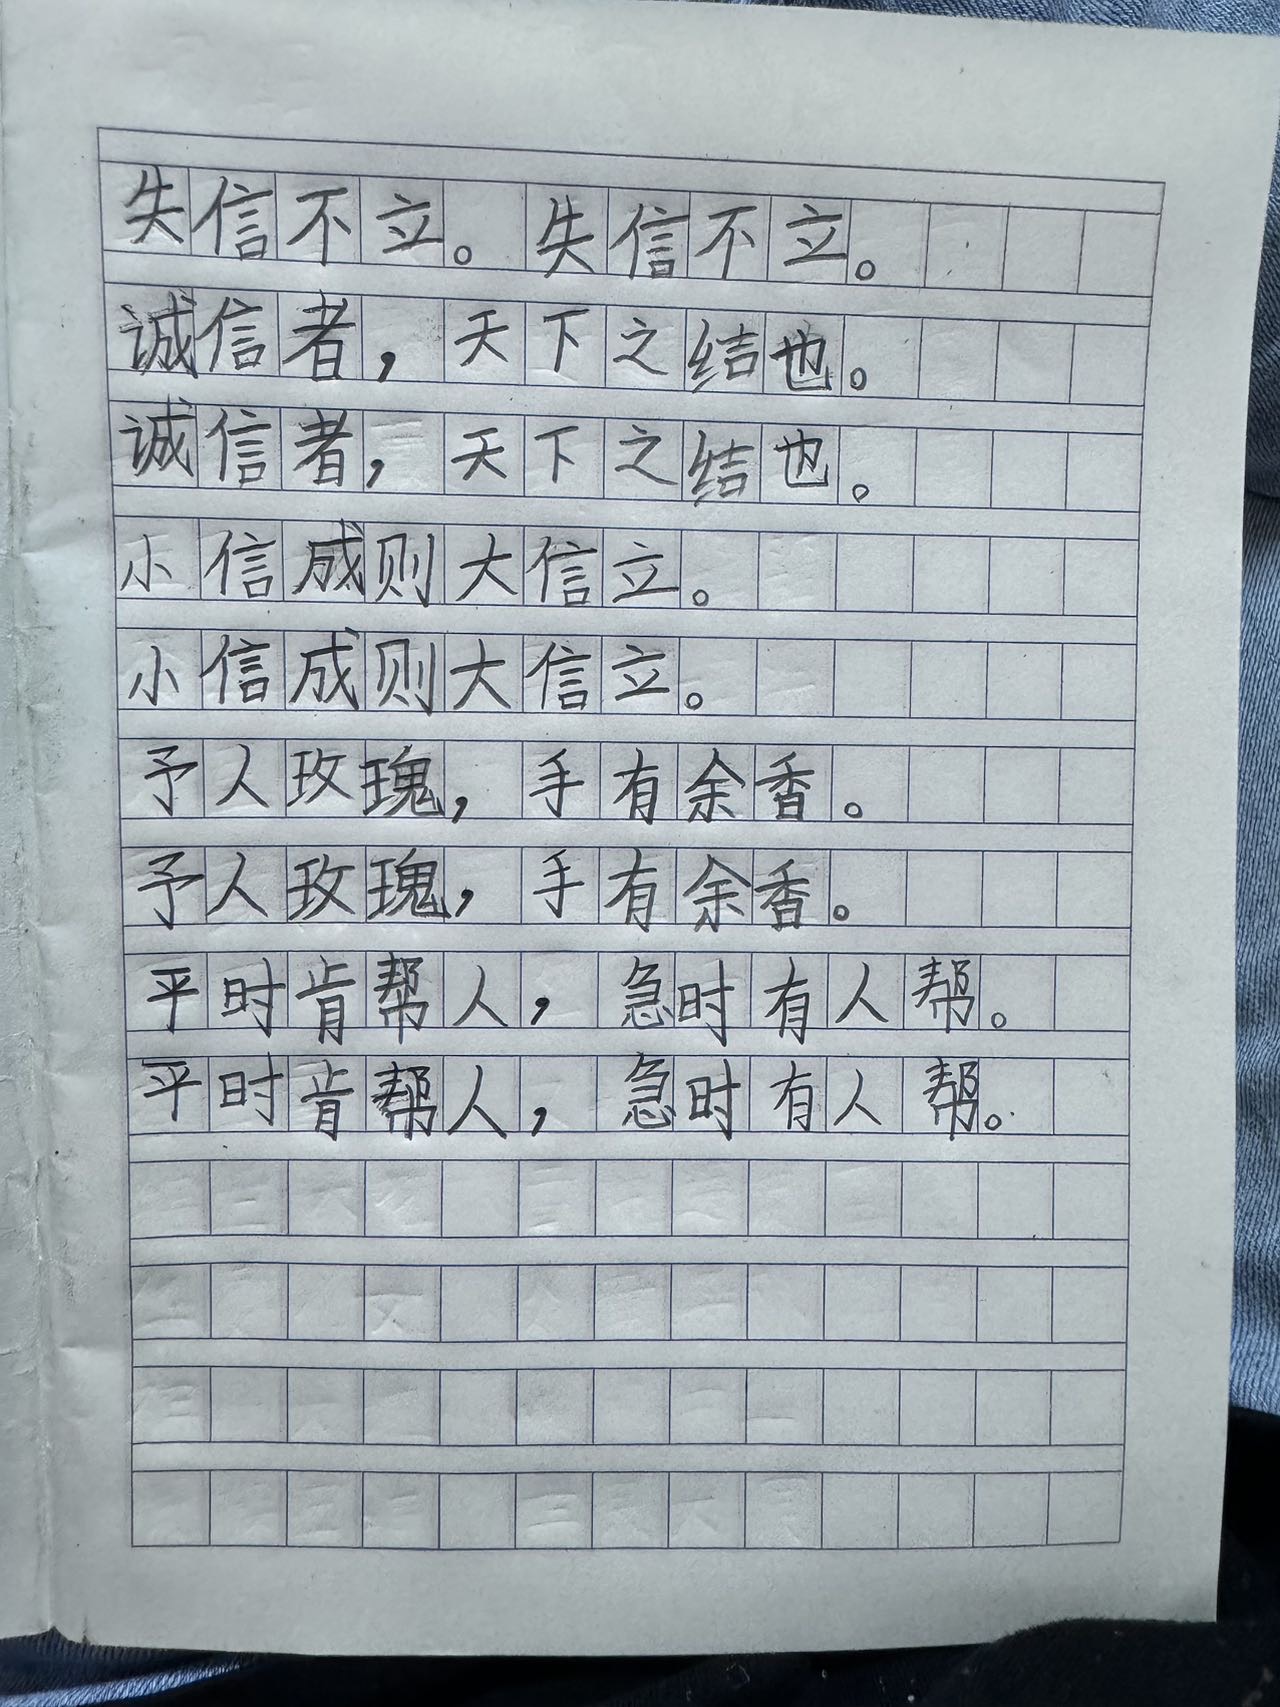 失信不立。失信不立。
诚信者，天下之结也。
诚信者，天下之结也。
小信成则大信立。
小信成则大信立。
予人玫瑰，手有余香。
予人玫瑰，手有余香。
平时肯帮人，急时有人帮。
平时肯帮人，急时有人帮。